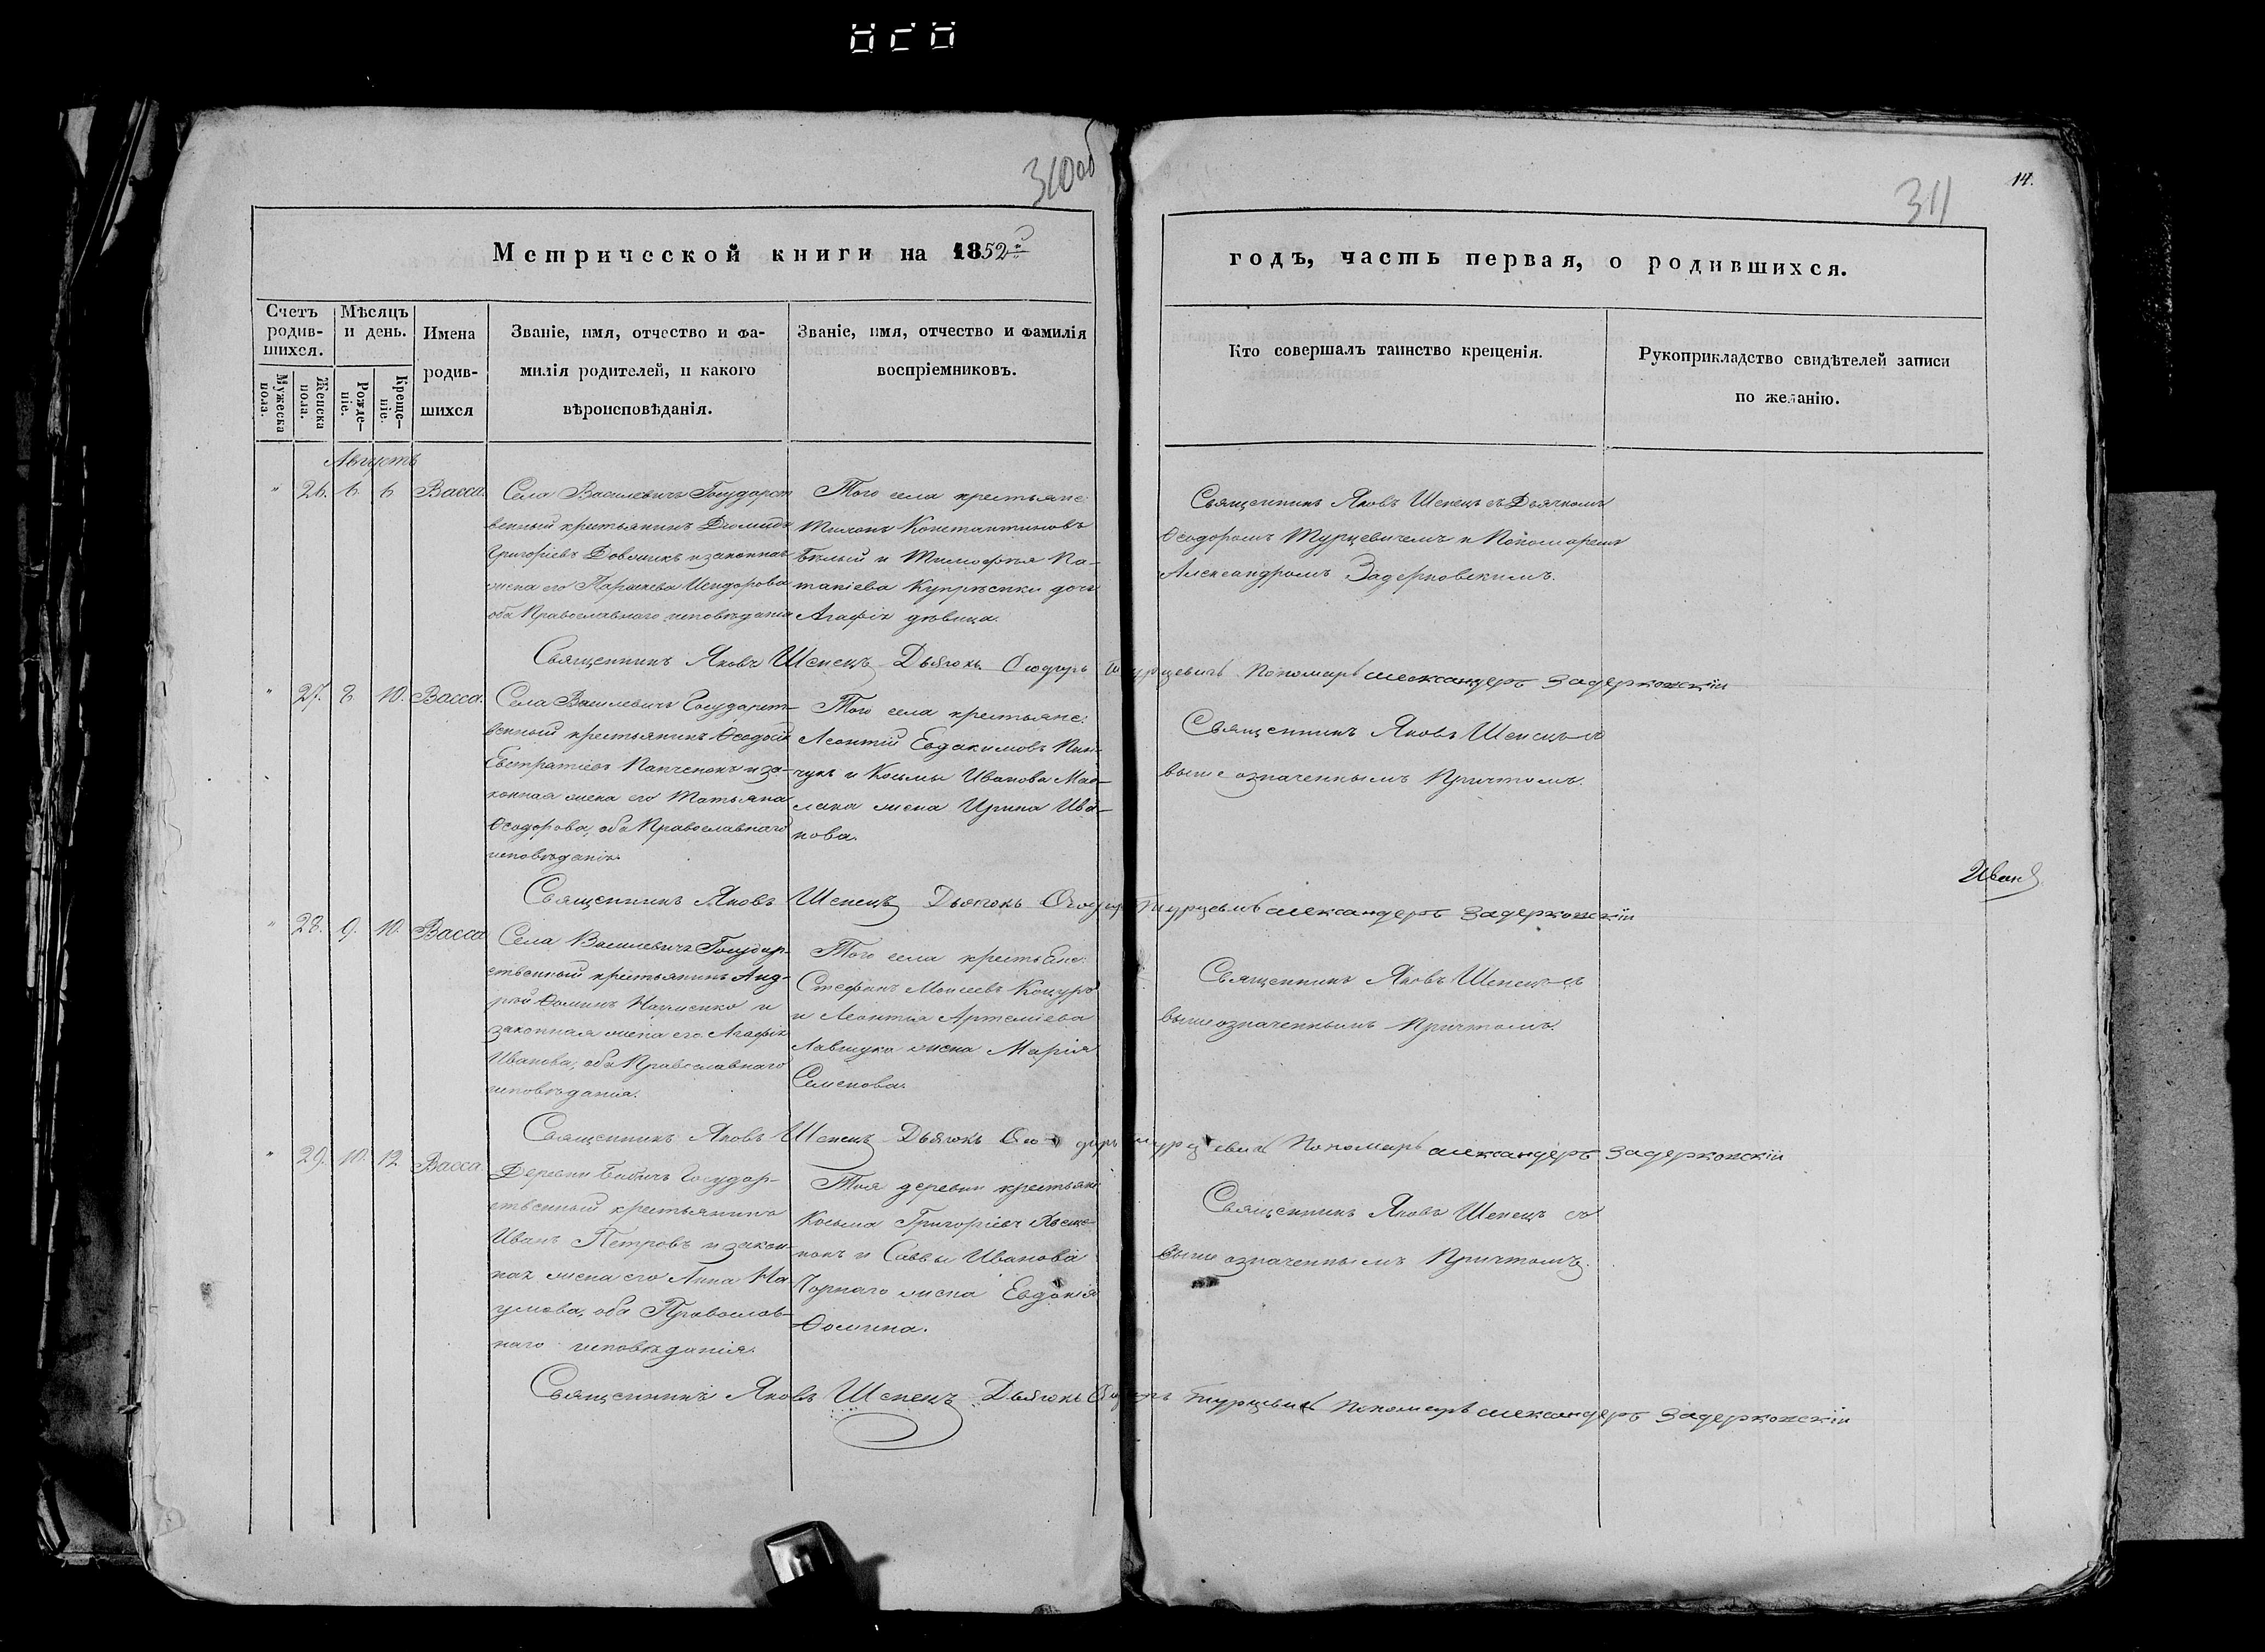 310об
311
14.
Метрической книги на 1852й
годъ, часть первая, о родившихся.
Счетъ родившихся.
Мужеска пола.
Женска пола.
Мѣсяцъ и день.
Рожденіе.
Крещеніе.
Имена родившихся
Званіе, имя, отчество и фамилія родителей, и какого вѣроисповѣданія.
Званіе, имя, отчество и фамилія воспріемниковъ.
Кто совершалъ таинство крещенія.
Рукоприкладство свидѣтелей записи по желанію.
Августъ
" 26. 6 6 Васса.
Села Василевичъ Государст
венный крестьянинъ Діомидъ
Григоріевъ и законная
жена его Параскева Исидорова
оба Православнаго исповѣданія
Того села крестьяне:
Константиновъ
Бѣлый и Тимофея
дочь
Агафія дѣвица.
Священникъ Яковъ Шепецъ съ Дьячкомъ
Ѳеодоромъ Турцевичемъ и Пономаремъ
Александромъ Задерковскимъ.
Священникъ Яковъ Шепецъ Дьячокъ Ѳеодоръ Турцевичъ Пономарь александеръ Задерковскіи
" 27. 8 10. Васса.
Села Василевичъ Государст-
венный крестьянинъ Ѳеодосій
Евстратіевъ Панченокъ и за-
конная жена его Татьяна
Ѳеодорова, оба Православнаго
исповѣданія.
Того села крестьяне:
Леонтій Евдакимовъ Пин-
чукъ и Космы Иванова Мас-
лака жена Ирина Ива-
нова.
Священникъ Яковъ Шепецъ съ
выше означеннымъ Причтомъ.
Иван
Священникъ Яковъ Шепецъ Дьячокъ Турцевичъ александеръ Задерковскіи
" 28. 9. 10. Васса
Села Василевичъ Государ-
ственный крестьянинъ Анд-
рей Ѳоминъ Науменко и
законная жена его Агафія
Иванова, оба Православнаго
исповѣданія.
Того села крестьяне:
Стефанъ Моисеевъ Коцуръ
и Леонтія Артеміева
жена Марія
Семенова.
Священникъ Яковъ Шепецъ съ
вышеозначеннымъ Причтомъ.
Священникъ Яковъ Шепецъ Дьячокъ Ѳеодоръ Турцевичъ Пономарь александеръ Задерковскіи
" 29. 10. 12 Васса.
Деревни Бабичъ Государ-
ственный крестьянинъ
Иванъ Петровъ и закон-
ная жена его Анна На-
умова, оба Православ-
наго исповѣданія.
Тоя деревни крестьяне
Косьма Григоріевъ
и Саввы Иванова
Чорнаго жена Евдокія
Ѳомина.
Священникъ Яковъ Шепецъ съ
выше означеннымъ Причтомъ.
Священникъ Яковъ Шепецъ Дьячокъ Ѳеодоръ Турцевичъ Пономарь александеръ Задерковскіи